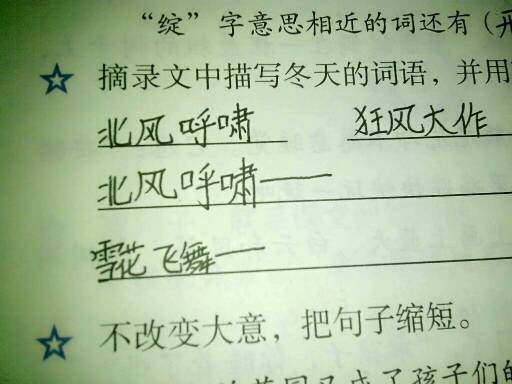 “绽”字意思相近的词还有（开
☆ 摘录文中描写冬天的词语，并用
北风呼啸 狂风大作
北风呼啸——
雪花飞舞—
☆ 不改变大意，把句子缩短。